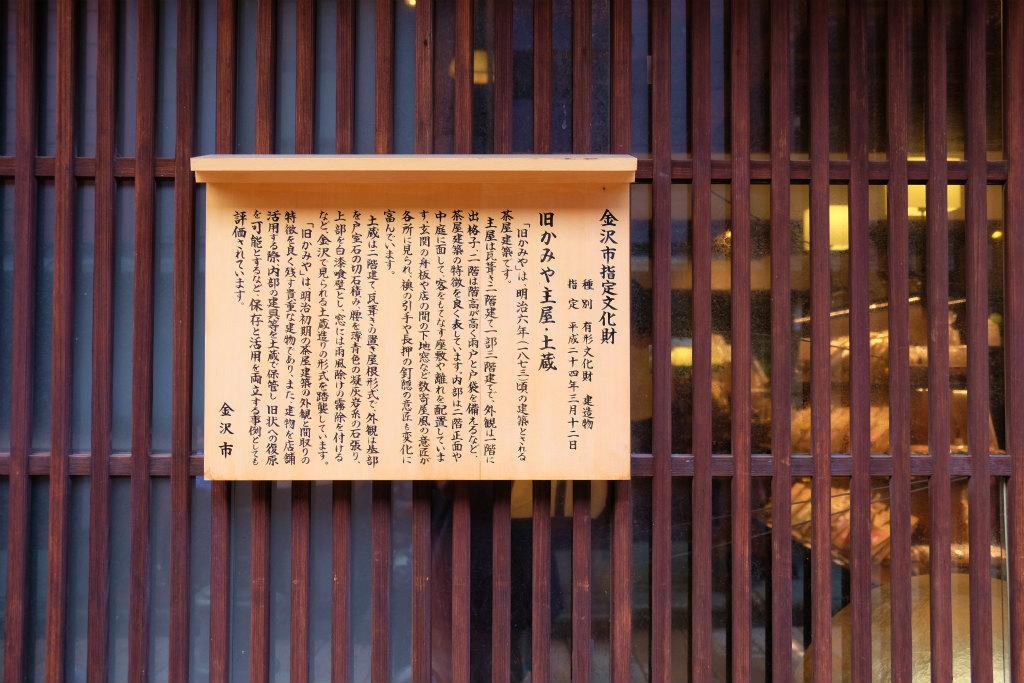 金沢市指定文化財
種別 有形文化財 建造物
指定 平成二十四年三月十二日
旧かみや主屋・土蔵
「旧かみや」は、明治六年(一八七三)頃の建築とされる
茶屋建築です。
主屋は瓦葺き二階建て一部三階建で、外観は一階に
出格子、二階は階高が高く雨戸と戸袋を備えるなど、
茶屋建築の特徴を良く表しています。内部は二階正面や
中庭に面して、客をもてなす座敷や離れを配置していま
す。玄関の舟板や店の間の下地窓など数寄屋風の意匠が
各所に見られ、襖の引手や長押の釘隠の意匠も変化に
富んでいます。
土蔵は二階建て、瓦葺きの置き屋根形式で、外観は基部
を戸室石の切石積み、腰を薄青色の凝灰岩系の石張り、
上部を白漆喰壁とし、窓には雨風除けの霧除を付ける
など、金沢で見られる土蔵造りの形式を踏襲しています。
「旧かみや」は、明治初期の茶屋建築の外観と間取りの
特徴を良く残す貴重な建物であり、また、建物を店舗
活用する際、内部の建具等を土蔵で保管し、旧状への復原
を可能とするなど、保存と活用を両立する事例としても
評価されています。
金沢市